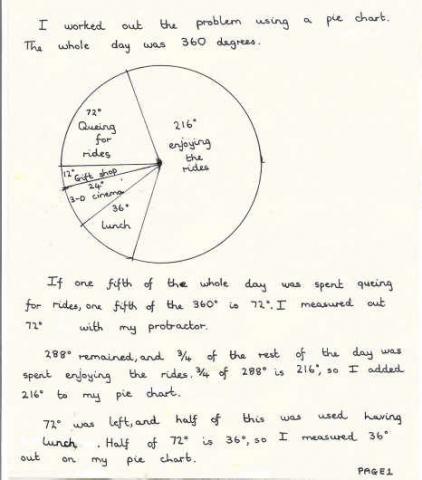 I worked out the problem using a pie chart.
The whole day was 360 degrees.
72°
Queing
for
rides
216°
enjoying
the
rides
12° Gift shop
24°
3-D cinema
36°
lunch
If one fifth of the whole day was spent queing
for rides, one fifth of the 360° is 72°. I measured out
72° with my protractor.
288° remained, and 3/4 of the rest of the day was
spent enjoying the rides. 3/4 of 288° is 216°, so I added
216° to my pie chart.
72° was left, and half of this was used having
lunch. Half of 72° is 36°, so I measured 36°
out on my pie chart.
PAGE 1